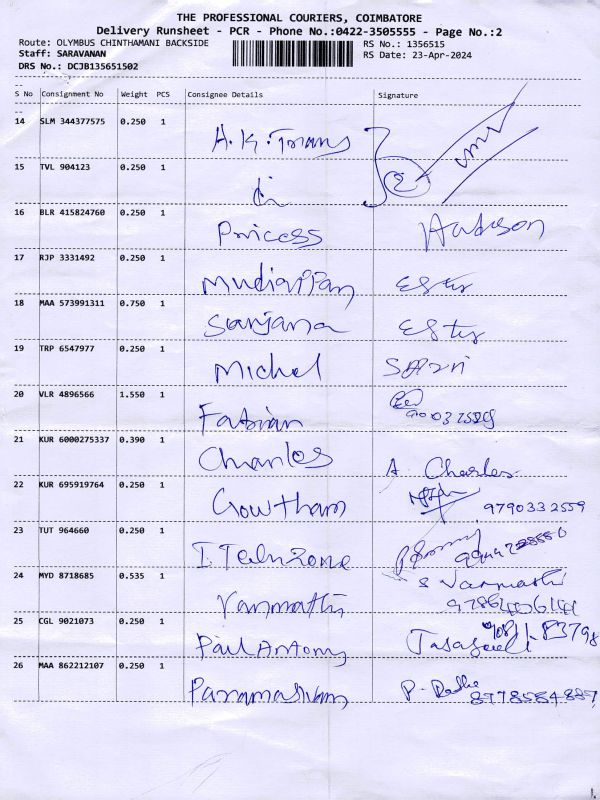 THE PROFESSIONAL COURIERS, COIMBATORE
Delivery Runsheet - PCR - Phone No.:0422-3505555 - Page No.:2
Route: OLYMBUS CHINTHAMANI BACKSIDE RS No.: 1356515
Staff: SARAVANAN RS Date: 23-Apr-2024
DRS No.: DCJB135651502
S No Consignment No Weight PCS Consignee Details Signature
14 SLM 344377575 0.250 1 A.K. Trans
15 TVL 904123 0.250 1 2
16 BLR 415824760 0.250 1 Princess
17 RJP 3331492 0.250 1 Mudiappan Ester
18 MAA 573991311 0.750 1 Sanjana Ester
19 TRP 6547977 0.250 1 Michel
20 VLR 4896566 1.550 1 Fabian
21 KUR 6000275337 0.390 1 Charles A. Charles
22 KUR 695919764 0.250 1 Gowtham 9790332559
23 TUT 964660 0.250 1
24 MYD 8718685 0.535 1 Vanmathi S Vanmathi
25 CGL 9021073 0.250 1 Paul Antony
26 MAA 862212107 0.250 1 Paramasivam P. 8778584887